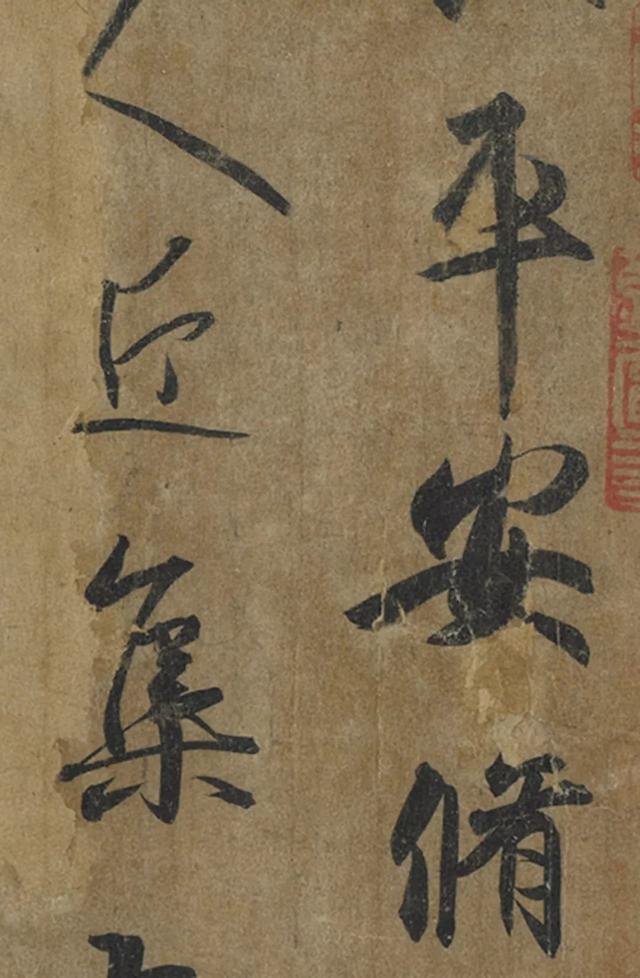 平安脩
人近集